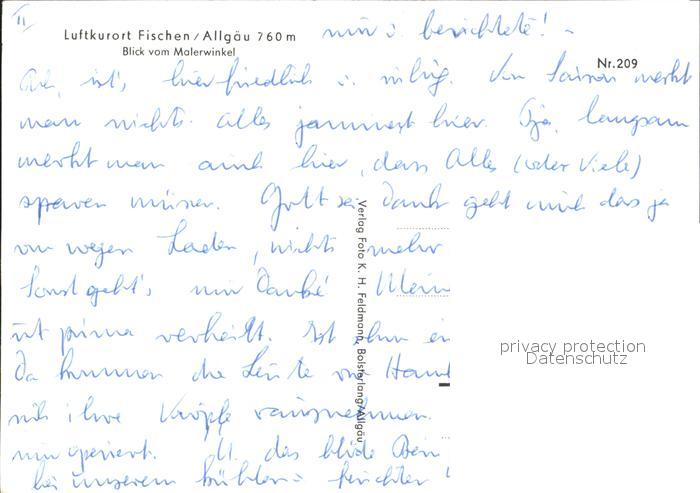 II
Luftkurort Fischen/Allgäu 760 m
Blick vom Malerwinkel
mir u. berichtete! -
Nr. 209
ist's hier friedlich u. ruhig. Von Saison merkt
man nichts. Alles jammert hier. Tja, langsam
merkt man auch hier, dass Alles (oder Viele)
sparen müssen. Gott sei Dank geht mich das ja
von wegen Laden, nichts mehr
Sonst geht's mir Danke! Mein
ist prima verheilt. Ist ihm
Da kommen die Leute von
ihre Knöpfe rausnehmen.
operiert. U. das blöde Bein
bei unserem kühlen u. feuchten
Verlag Foto K. H. Feldmann, Bolsterlang/Allgäu
privacy protection
Datenschutz